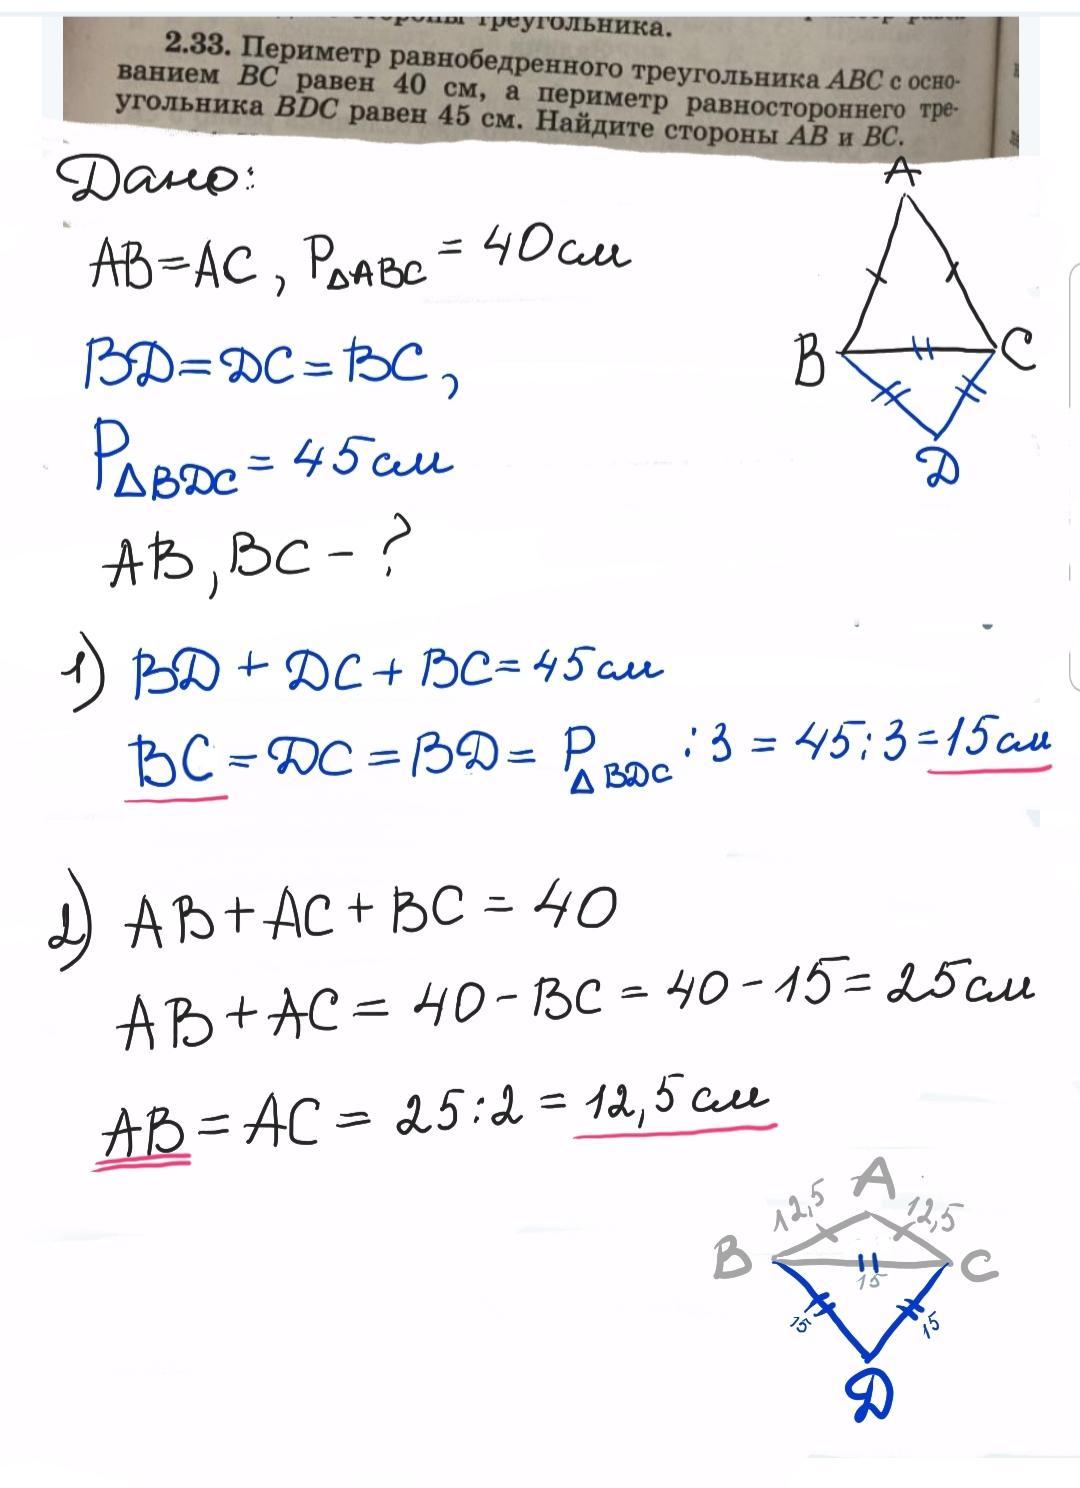 треугольника.
2.33. Периметр равнобедренного треугольника ABC с осно-
ванием BC равен 40 см, а периметр равностороннего тре-
угольника BDC равен 45 см. Найдите стороны AB и BC.
Дано:
AB=AC, P△ABC = 40см
BD=DC=BC,
P△BDC = 45см
AB, BC - ?
A
B
C
D
1) BD + DC + BC = 45см
BC = DC = BD = P△BDC : 3 = 45:3 = 15см
2) AB + AC + BC = 40
AB + AC = 40 - BC = 40 - 15 = 25см
AB = AC = 25:2 = 12,5 см
A
12,5
12,5
B
C
15
15
15
D